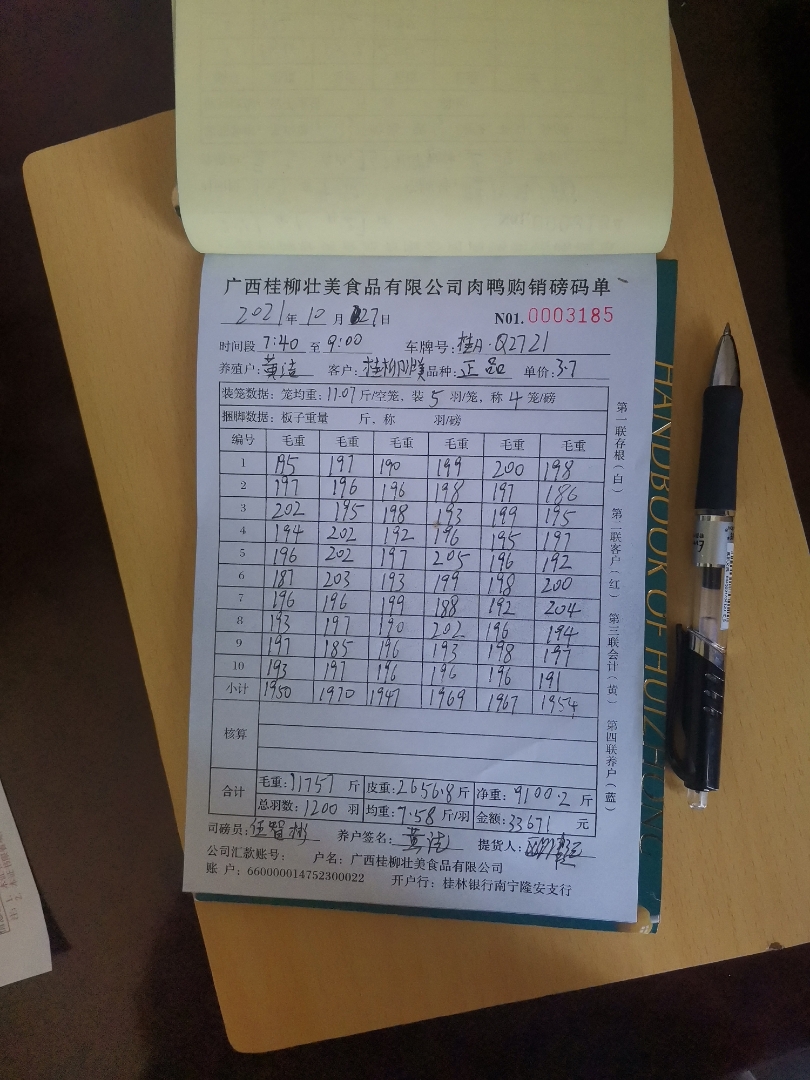 广西桂柳壮美食品有限公司肉鸭购销磅码单
2021年 10 月 27日 N01. 0003185
时间段 7:40 至 9:00 车牌号: 桂A·Q2721
养殖户: 黄洁 客户: 桂柳 品种: 正品 单价: 3.7
装笼数据: 笼均重: 11.07 斤/空笼, 装 5 羽/笼, 称 4 笼/磅
捆脚数据: 板子重量 斤, 称 羽/磅
编号 毛重 毛重 毛重 毛重 毛重 毛重
1 195 197 190 199 200 198
2 197 196 196 198 197 186
3 202 195 198 193 199 195
4 194 202 192 196 195 197
5 196 202 197 205 196 192
6 187 203 193 199 198 200
7 196 196 199 188 192 204
8 193 197 190 202 196 194
9 197 185 196 193 198 197
10 193 197 196 196 196 191
小计 1950 1970 1947 1969 1967 1954
核算
合计 毛重: 11757 斤 皮重: 2656.8 斤 净重: 9100.2 斤
总羽数: 1200 羽 均重: 7.58 斤/羽 金额: 33671 元
司磅员: 任智彬 养户签名: 黄洁 提货人:
公司汇款账号: 户名: 广西桂柳壮美食品有限公司
账 户: 660000014752300022 开户行: 桂林银行南宁隆安支行
第一联存根(白) 第二联客户(红) 第三联会计(黄) 第四联养户(蓝)
HANDBOOK OF HUIZHONG